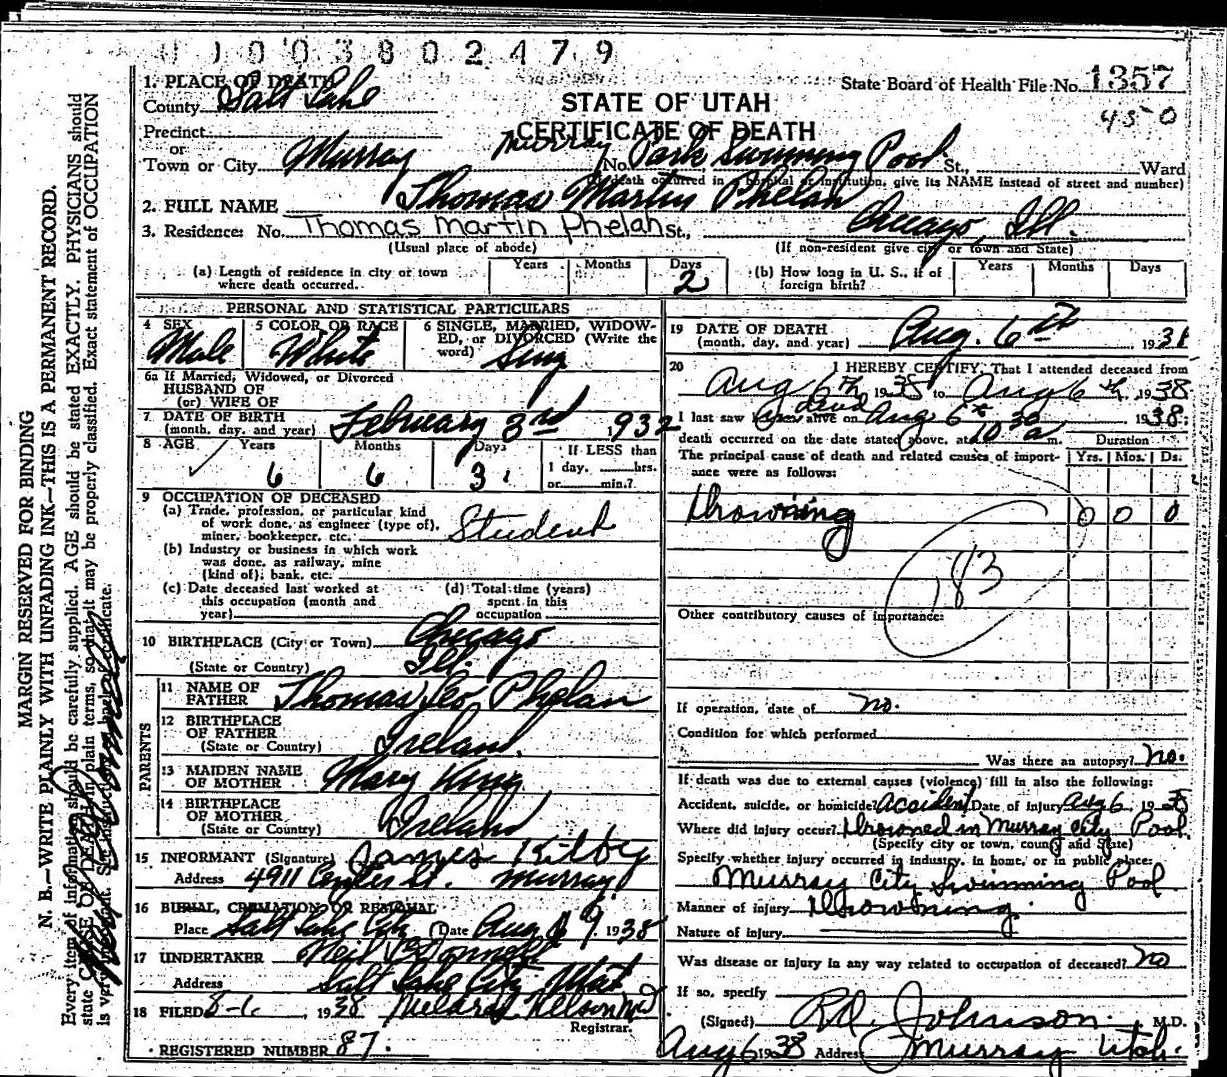 1003802479
1. PLACE OF DEATH
County Salt Lake
State Board of Health File No. 1357
STATE OF UTAH
45 0
CERTIFICATE OF DEATH
Precinct
or
Town or City Murray Murray No. Park Swimming Pool St., Ward
(If death occurred in a hospital or institution, give its NAME instead of street and number)
2. FULL NAME Thomas Martin Phelan
3. Residence: No. Thomas Martin Phelan St., Chicago, Ill.
(Usual place of abode) (If non-resident give city or town and State)
(a) Length of residence in city or town where death occurred. Years Months Days 2 (b) How long in U. S., if of foreign birth? Years Months Days
PERSONAL AND STATISTICAL PARTICULARS
4 SEX Male
5 COLOR OR RACE White
6 SINGLE, MARRIED, WIDOWED, OR DIVORCED (Write the word) Sing
6a If Married, Widowed, or Divorced
HUSBAND OF
(or) WIFE OF
7 DATE OF BIRTH
(month, day, and year) February 3rd 1932
8 AGE Years 6 Months 6 Days 3 If LESS than
1 day, hrs.
or min.?
9 OCCUPATION OF DECEASED
(a) Trade, profession, or particular kind
of work done, as engineer (type of),
miner, bookkeeper, etc. Student
(b) Industry or business in which work
was done, as railway, mine
(kind of); bank, etc.
(c) Date deceased last worked at
this occupation (month and
year)
(d) Total time (years)
spent in this
occupation
10 BIRTHPLACE (City or Town) Chicago
(State or Country) Ill.
PARENTS
11 NAME OF
FATHER Thomas Leo Phelan
12 BIRTHPLACE
OF FATHER
(State or Country) Ireland
13 MAIDEN NAME
OF MOTHER Mary King
14 BIRTHPLACE
OF MOTHER
(State or Country) Ireland
15 INFORMANT (Signature) James Kilby
Address 4911 Center St. Murray
16 BURIAL, CREMATION OR REMOVAL
Place Salt Lake City Date Aug 9, 1938
17 UNDERTAKER Neil O'Donnell
Address Salt Lake City Utah
18 FILED 8-6, 1938 Nelson MD
Registrar.
REGISTERED NUMBER 87.
19 DATE OF DEATH
(month, day, and year) Aug. 6th 1938
20 I HEREBY CERTIFY, That I attended deceased from
Aug 6th 1938 to Aug 6th, 1938
I last saw him alive on dead Aug 6th 1938.
death occurred on the date stated above, at 10 30 a m.
The principal cause of death and related causes of importance were as follows:
Duration
Yrs. Mos. Ds.
Drowning 0 0 0
183
Other contributory causes of importance:
If operation, date of no.
Condition for which performed
Was there an autopsy? no.
If death was due to external causes (violence) fill in also the following:
Accident, suicide, or homicide? accident Date of injury Aug 6 1938
Where did injury occur? Drowned in Murray City Pool.
(Specify city or town, county and State)
Specify whether injury occurred in industry, in home, or in public place:
Murray City Swimming Pool
Manner of injury Drowning.
Nature of injury
Was disease or injury in any way related to occupation of deceased? No
If so, specify
(Signed) R.D. Johnson. M.D.
Aug 6 1938 Address Murray Utah.
MARGIN RESERVED FOR BINDING
N. B.—WRITE PLAINLY WITH UNFADING INK—THIS IS A PERMANENT RECORD.
Every item of information should be carefully supplied. AGE should be stated EXACTLY. PHYSICIANS should
state CAUSE OF DEATH in plain terms, so that it may be properly classified. Exact statement of OCCUPATION
is very important. See instructions on back of certificate.